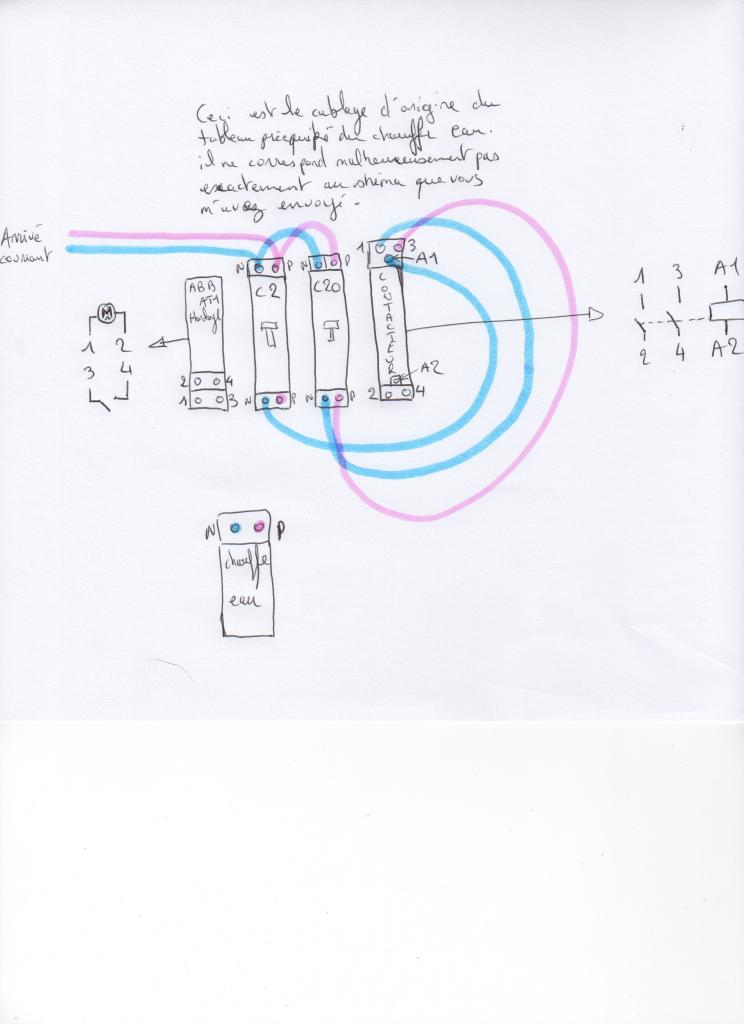 Ceci est le cablage d'origine du
tableau prééquipé du chauffe eau.
il ne correspond malheureusement pas
exactement au shéma que vous
m'avez envoyé.
Arrivé
courant
N P
N P
1 3
A1
ABB
AT1
Horloge
C2
C20
CONTACTEUR
1 3 A1
M
1 2
3 4
2 4
1 3
N P
N P
A2
2 4
2 4 A2
N P
chauffe
eau